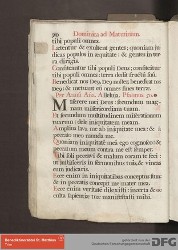 90 Dominica ad Matutinum.
tibi populi omnes.
Laetentur & exultent gentes: quoniam ju-
dicas populos in aequitate: & gentes in ter-
ra dirigis.
Confiteantur tibi populi Deus; confiteantur
tibi populi omnes: terra dedit fructum suum.
Benedicat nos Deus, Deus noster, benedicat nos
Deus: & metuant eum omnes fines terrae.
Psalmus 50.
Miserere mei Deus: secundum mag-
nam misericordiam tuam.
Et secundum multitudinem miserationum
tuarum: dele iniquitatem meam.
Amplius lava me ab iniquitate mea: & a
peccato meo munda me.
Quoniam iniquitatem meam ego cognosco: &
peccatum meum contra me est semper.
Tibi soli peccavi & malum coram te feci:
ut justificeris in sermonibus tuis, & vincas
cum judicaris.
Ecce enim in iniquitatibus conceptus sum:
& in peccatis concepit me mater mea.
Ecce enim veritatem dilexisti: incerta & oc-
culta sapientiae tuae manifestasti mihi.
DFG